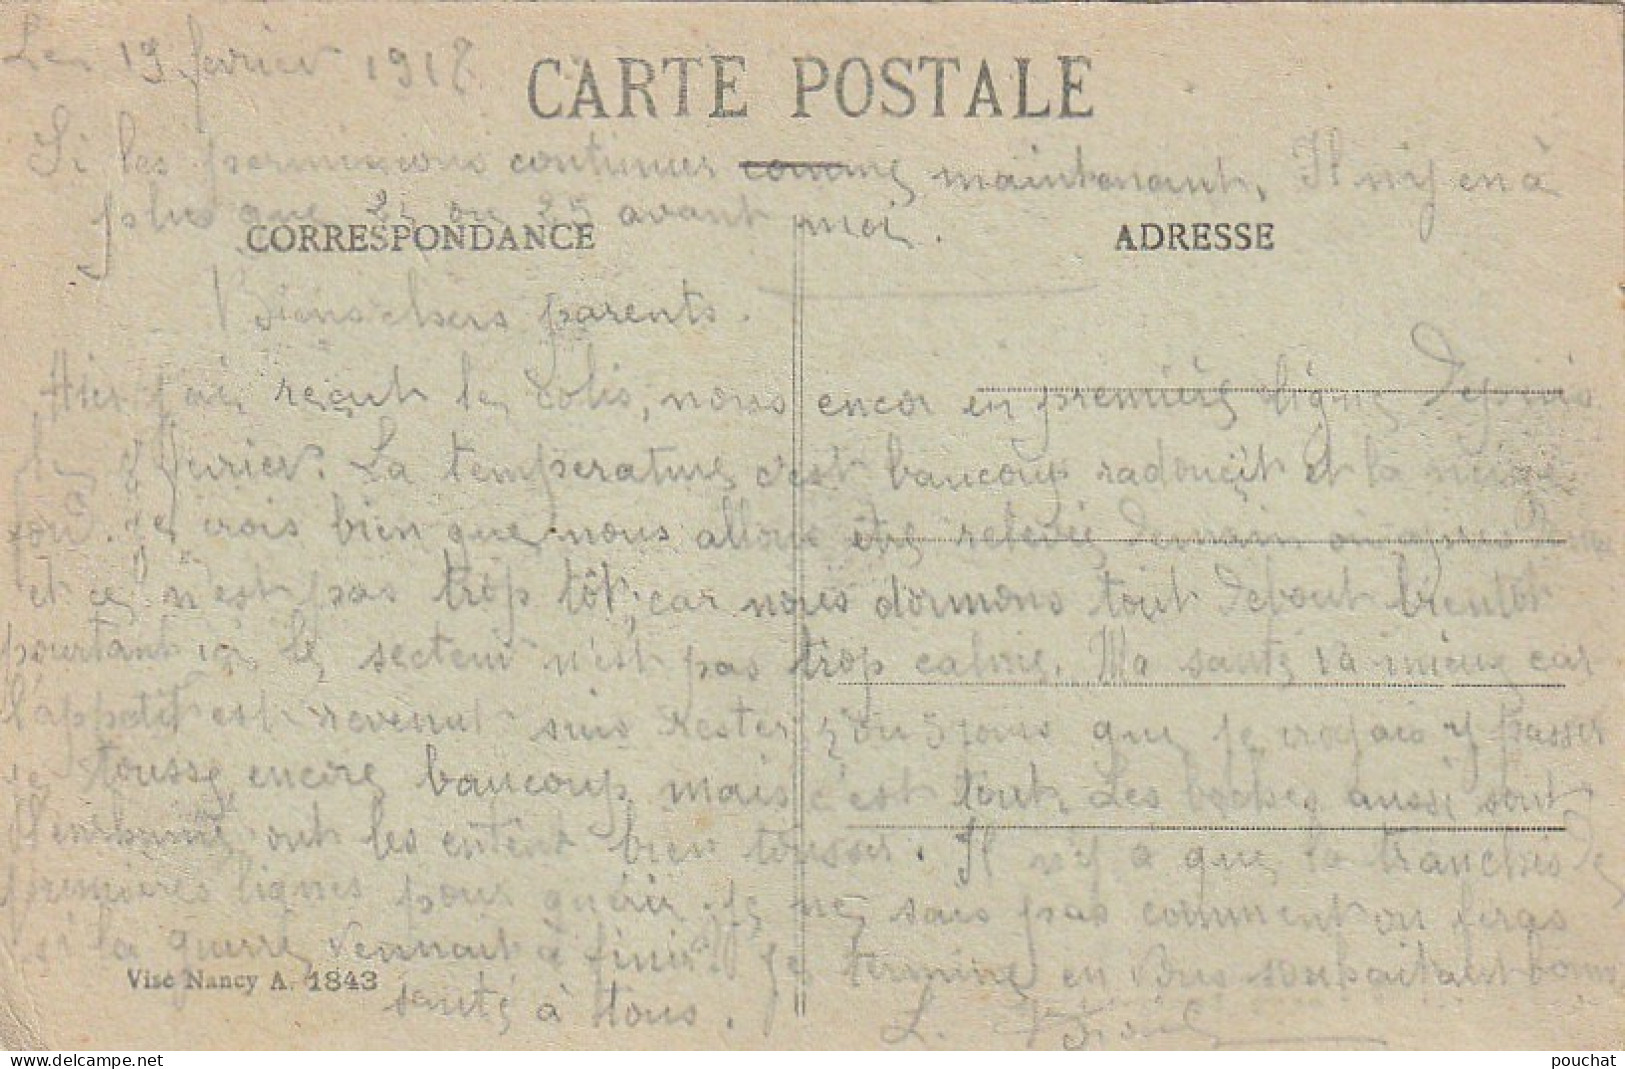 Le 19 fevrier 1917
CARTE POSTALE
Si les permissions continues comme maintenant, Il n'y en à
plus que 21 ou 25 avant moi.
CORRESPONDANCE
ADRESSE
Biens chers parents.
Hier j'ai reçut le colis, nous encor en première ligne depuis
le 8 fevrier. La temperature c'est baucoup radouçit et la neige
fond. Je crois bien que nous allons être relevée demain ou apres
et ce n'est pas trop tôt, car nous dormons tout debout bientôt
pourtant ici le secteur n'est pas trop calme. Ma santé va mieux car
l'appetit est revenut suis rester 2 ou 3 jours que je croyais y passer
je tousse encore baucoup mais c'est tout. Les boches aussi sont
enrhumé ont les entent bien tousser. Il n'y a que la tranchée de
premières lignes pour guérir. Je ne sais pas comment on feras
si la guerre vennait à finir. Je termine en Vous souhaitant bonne
santé à tous.
L.
Visé Nancy A. 1843
delcampe.net
pouchat